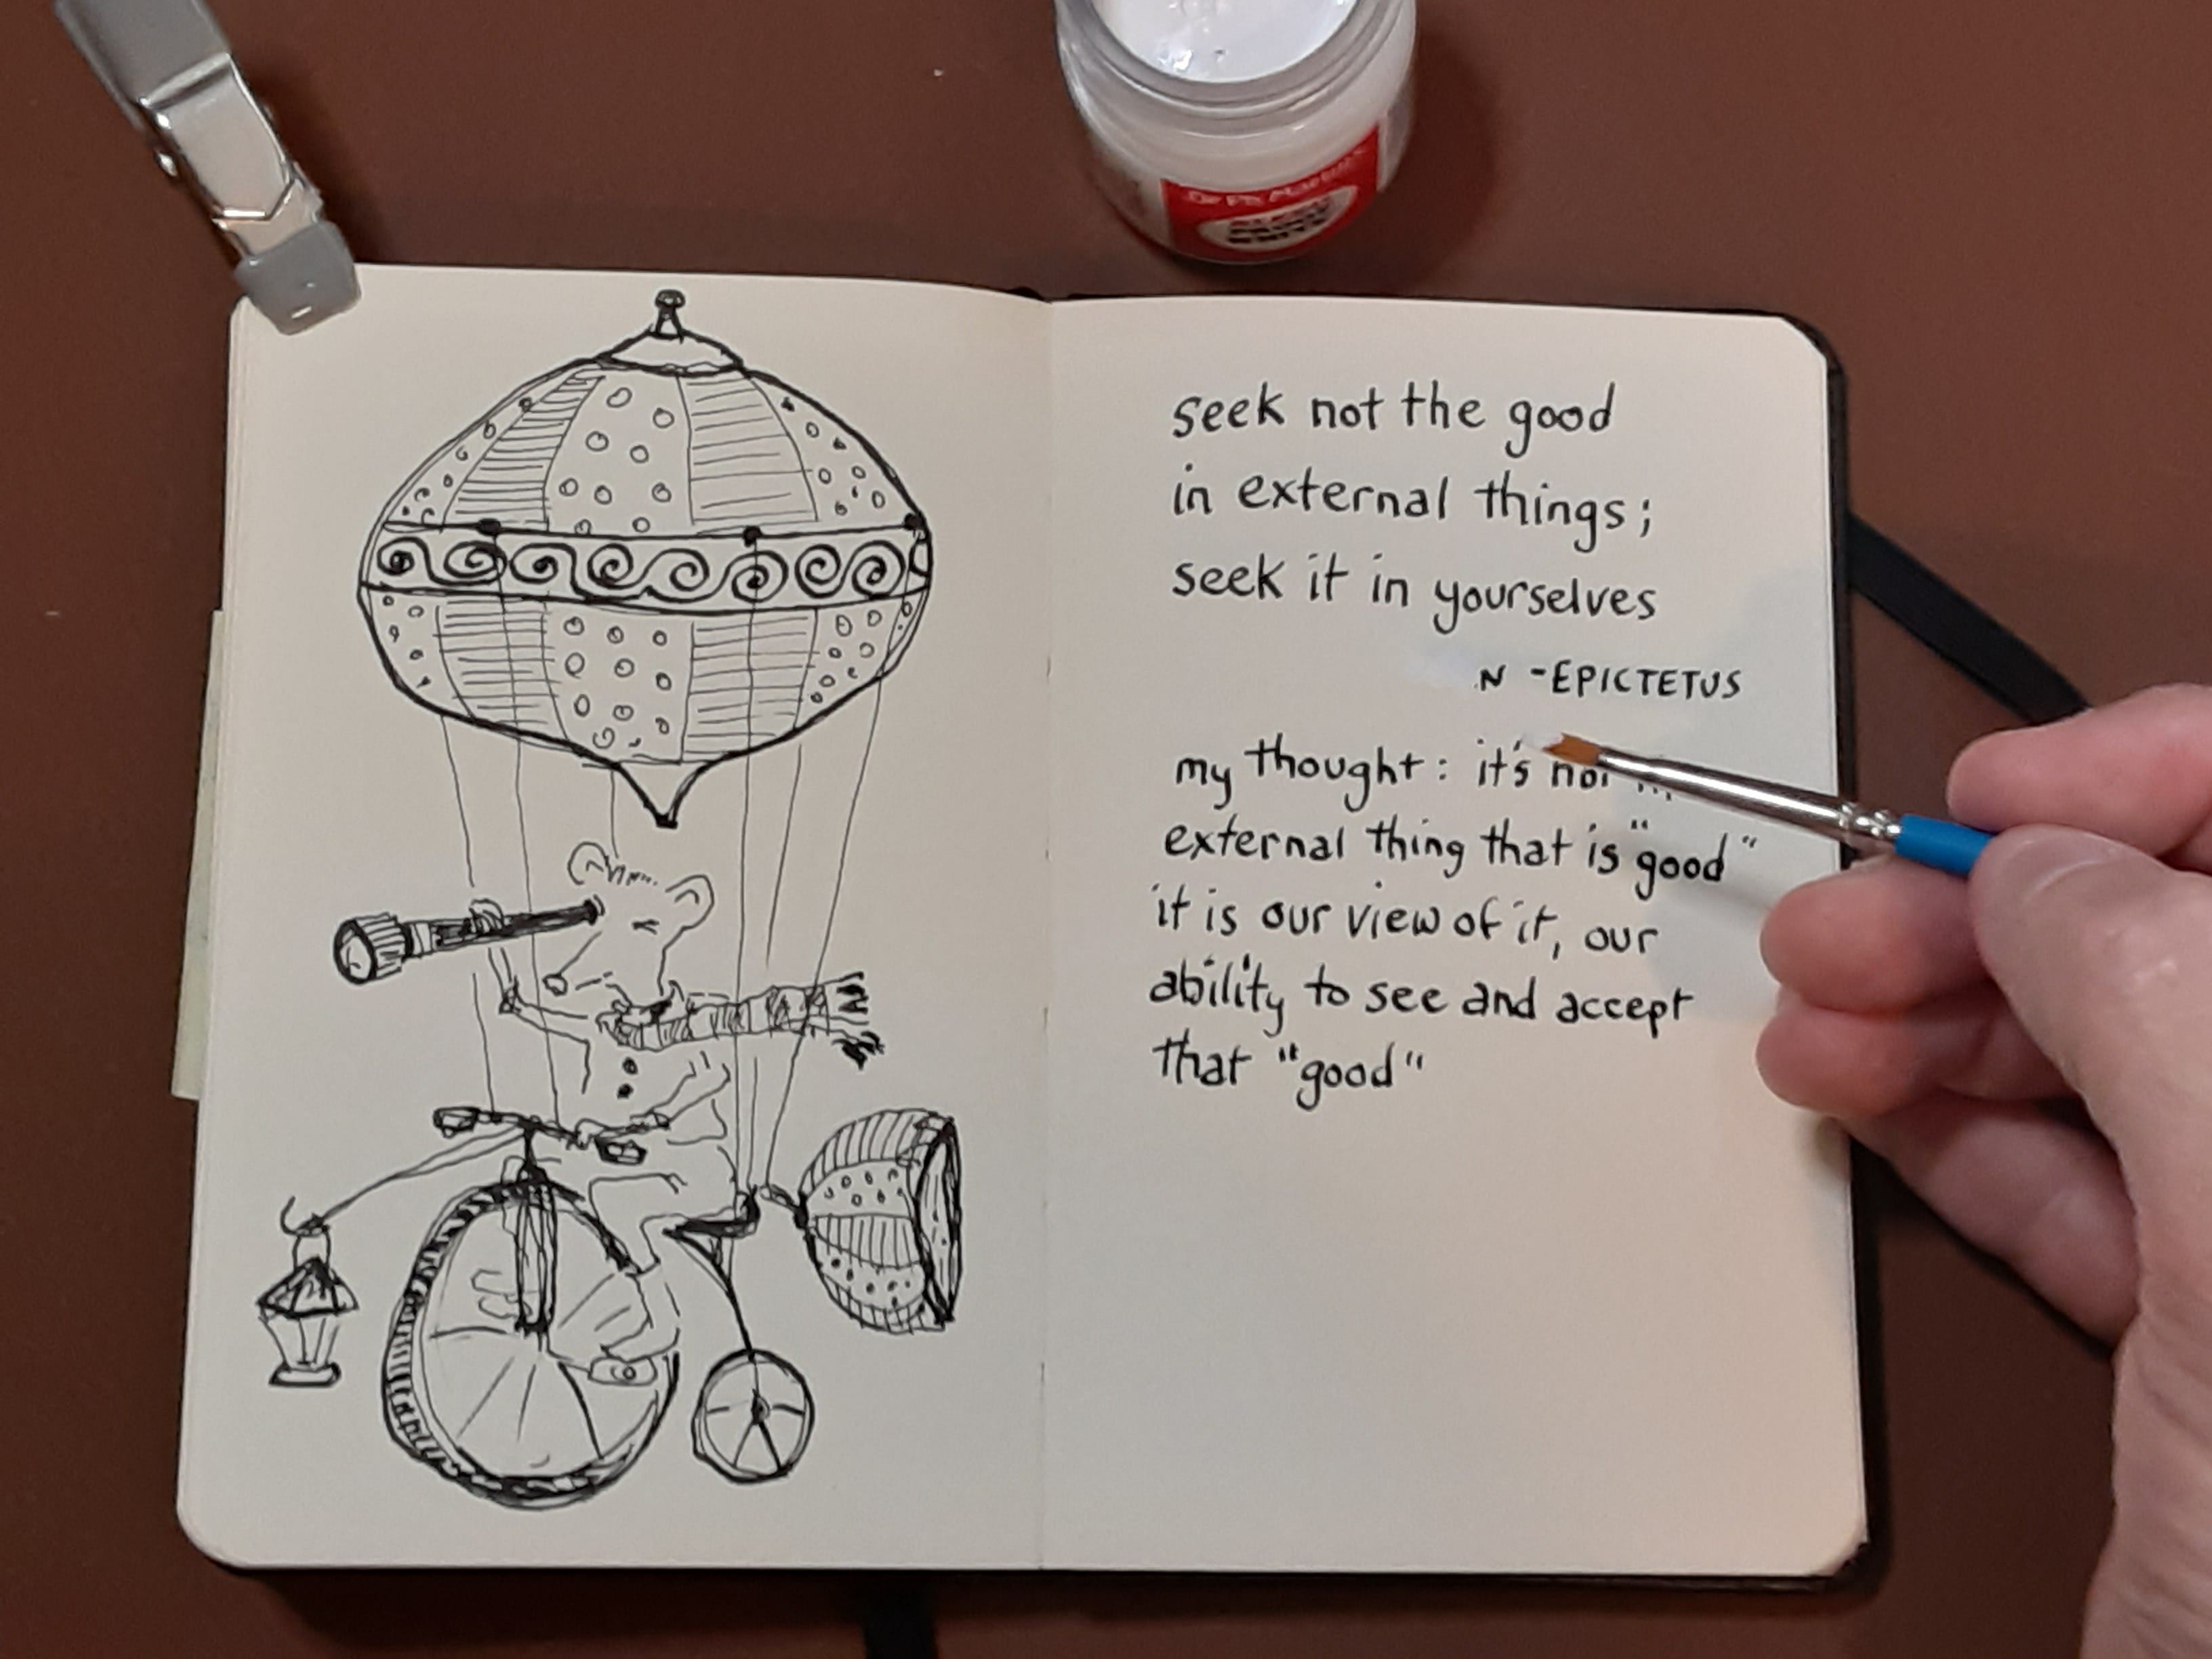 Dr. Ph. Martin's
BLEED
PROOF
WHITE
seek not the good
in external things;
seek it in yourselves
N -EPICTETUS
my thought: it's not
external thing that is "good"
it is our view of it, our
ability to see and accept
that "good"